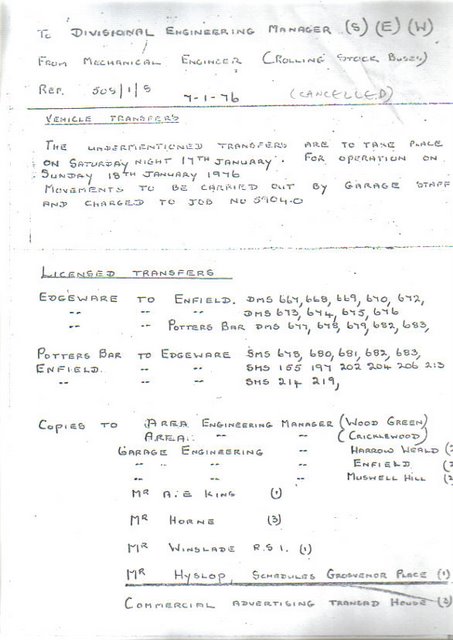 To Divisional Engineering Manager (S) (E) (W)
From Mechanical Engineer (Rolling Stock Buses)
Ref. 505/1/S
7-1-76 (Cancelled)
Vehicle Transfers
The undermentioned transfers are to take place
on Saturday night 17th January. For operation on
Sunday 18th January 1976
Movements to be carried out by garage staff
and charged to Job No 5904-0
Licensed Transfers
Edgeware to Enfield. DMS 667, 668, 669, 670, 672,
-- -- DMS 673, 674, 675, 676
-- -- Potters Bar DMS 677, 678, 679, 682, 683,
Potters Bar to Edgeware SMS 678, 680, 681, 682, 683,
Enfield. -- -- SMS 155 197 202 204 206 213
-- -- SMS 214 219,
Copies to Area Engineering Manager (Wood Green)
Area -- -- (Cricklewood)
Garage Engineering -- Harrow Weald (2
-- -- -- Enfield (2
-- -- -- Muswell Hill (2
Mr A.E King (1)
Mr Horne (3)
Mr Winslade R.S.1. (1)
Mr Hyslop, Schedules Grosvenor Place (1)
Commercial Advertising Transad House (3)